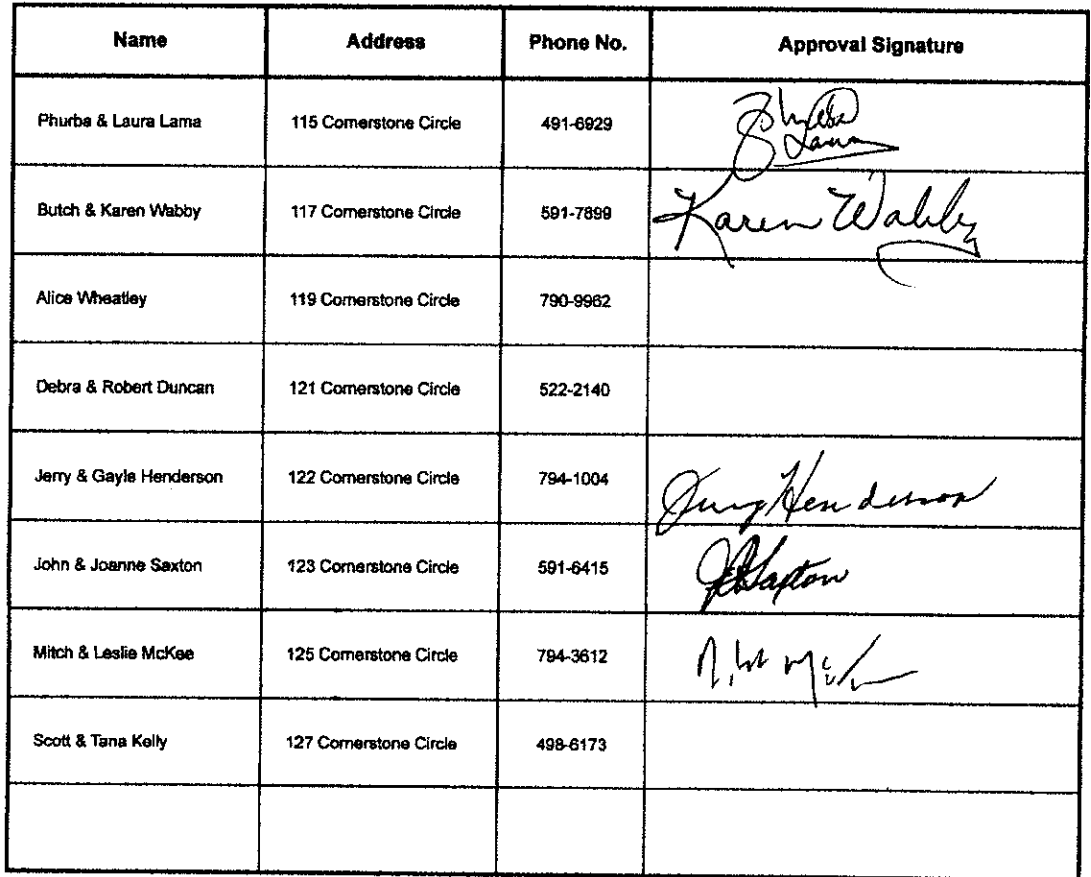 Name Address Phone No. Approval Signature
Phurba & Laura Lama 115 Cornerstone Circle 491-6929 Lama
Butch & Karen Wabby 117 Cornerstone Circle 591-7899 Karen Wabby
Alice Wheatley 119 Cornerstone Circle 790-9962
Debra & Robert Duncan 121 Cornerstone Circle 522-2140
Jerry & Gayle Henderson 122 Cornerstone Circle 794-1004 Jerry Henderson
John & Joanne Saxton 123 Cornerstone Circle 591-6415 Saxton
Mitch & Leslie McKee 125 Cornerstone Circle 794-3612
Scott & Tana Kelly 127 Cornerstone Circle 498-6173